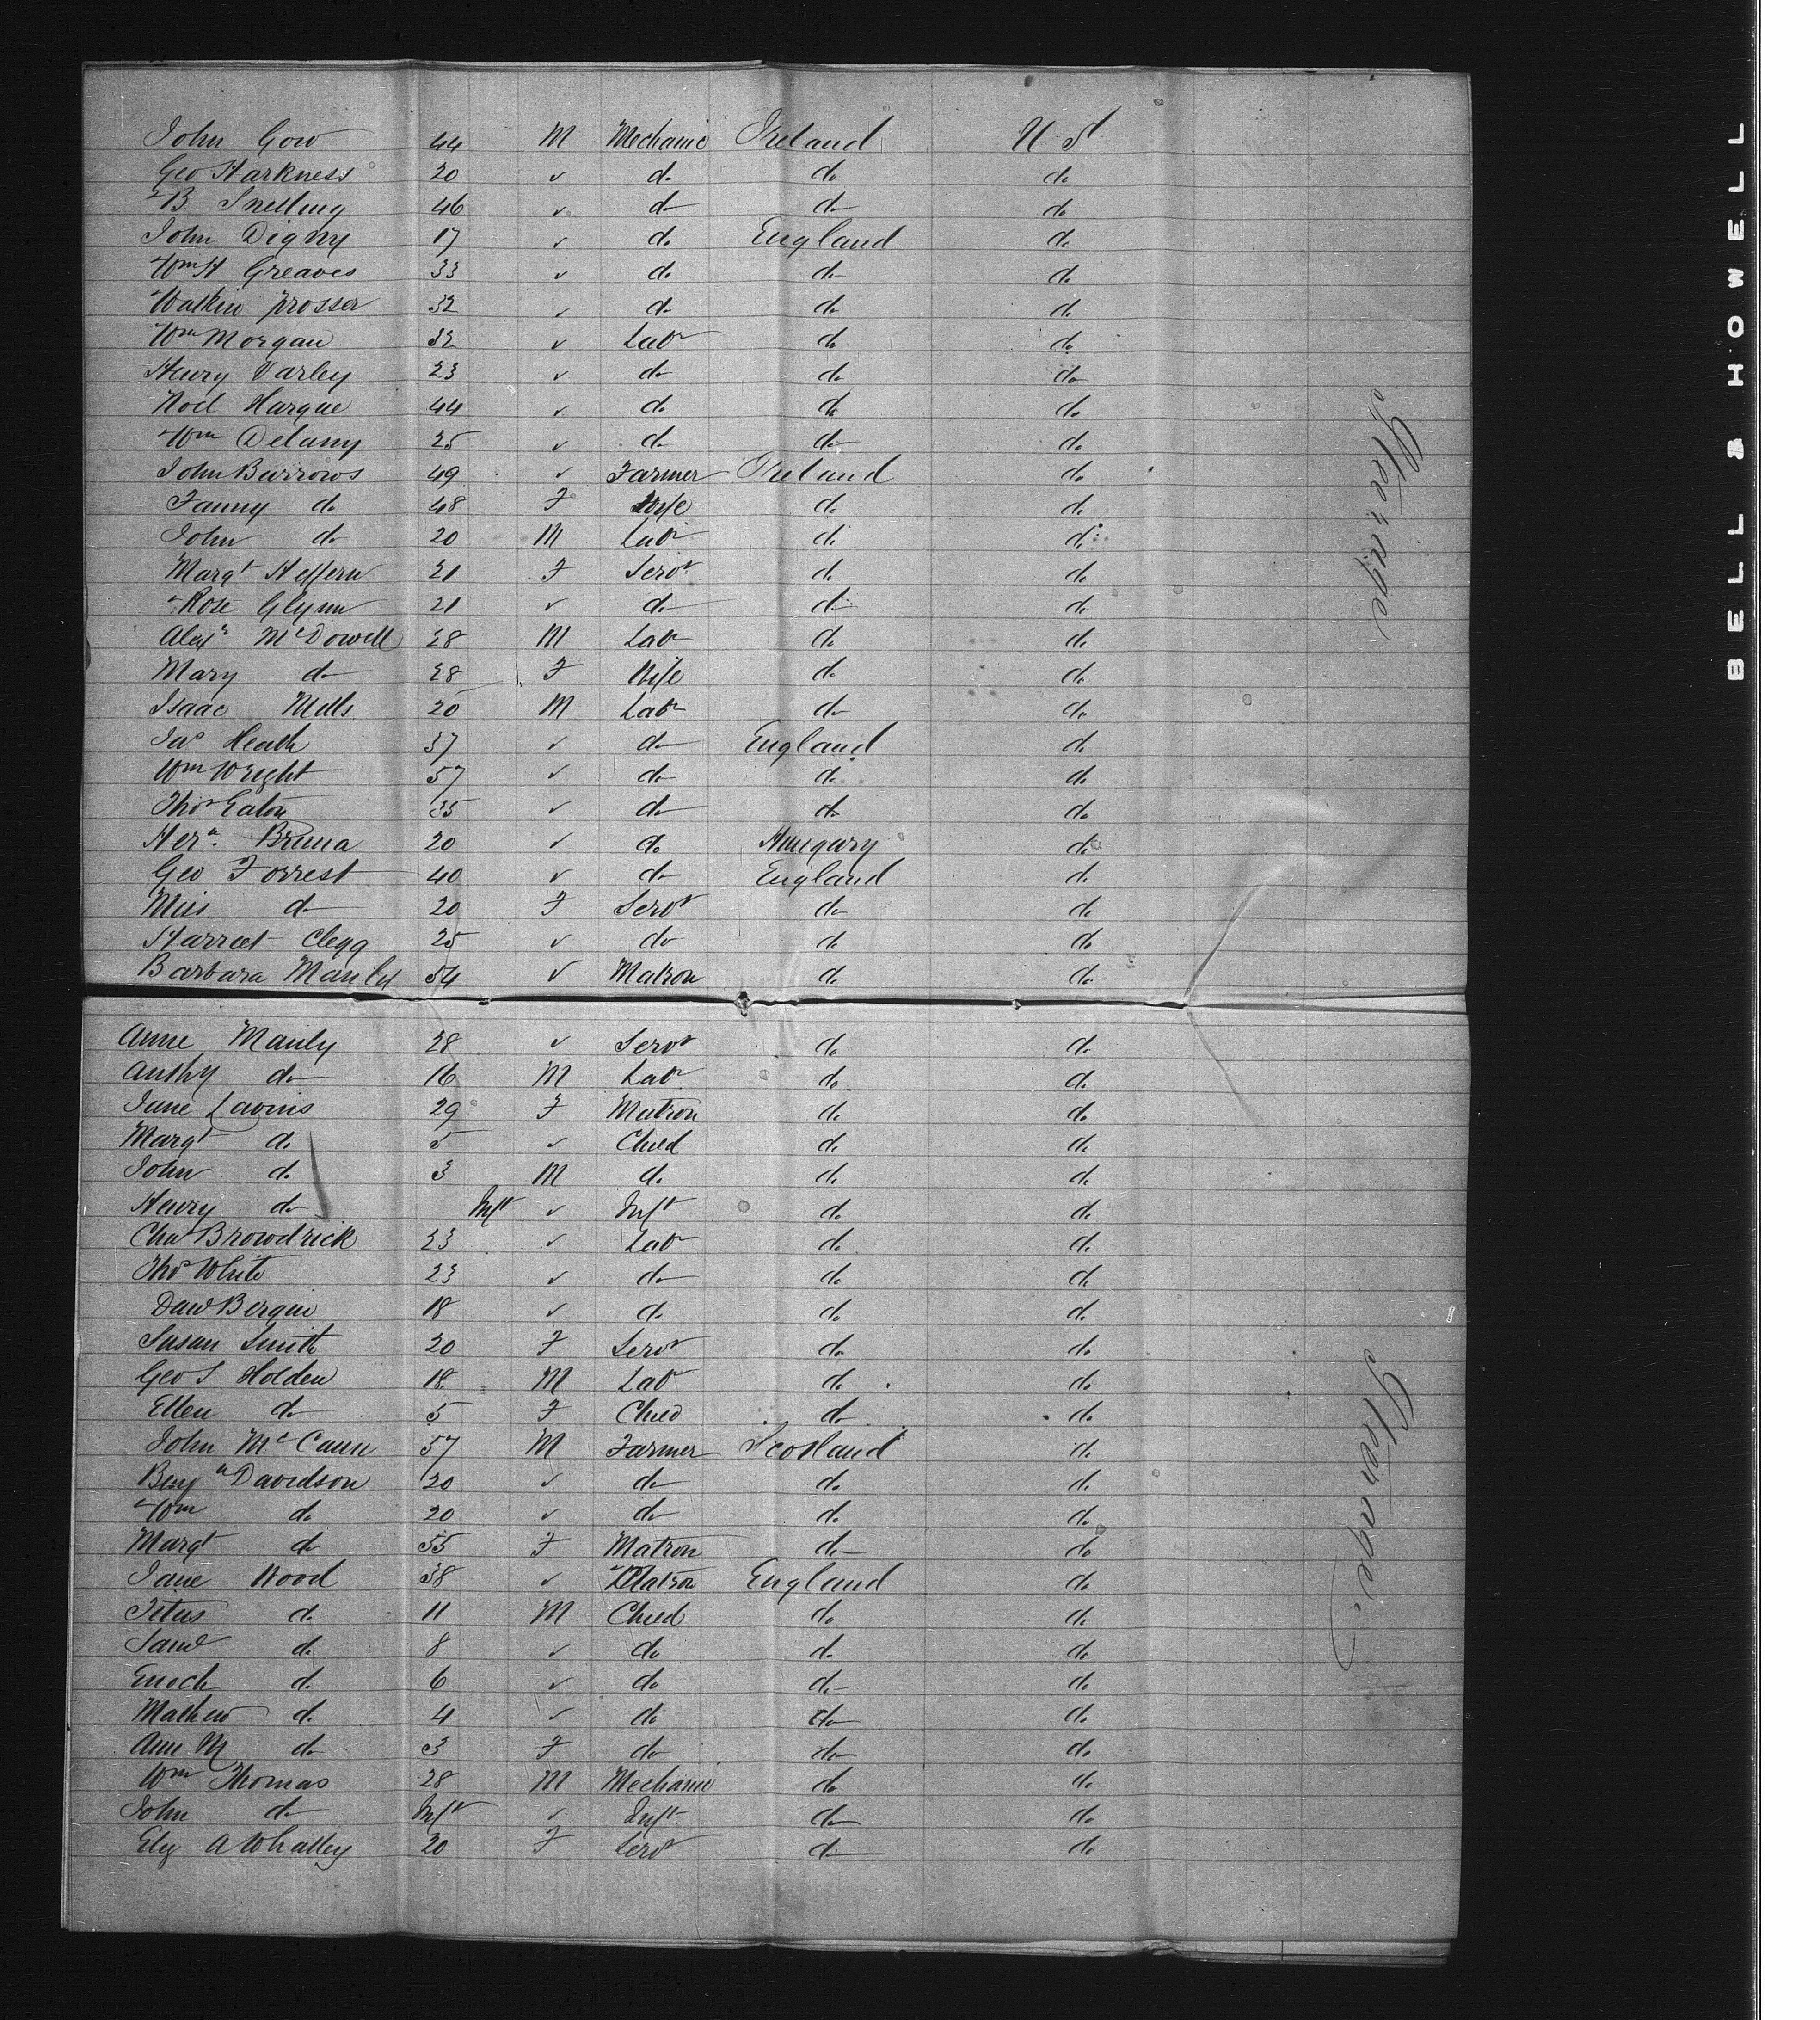 John Gow 44 M Mechanic Ireland U S
Geo Harkness 20 ✓ do do do
B. Snelling 46 ✓ do do do
John Digny 17 ✓ do England do
Wm H Greaves 33 ✓ do do do
Watkin Prosser 32 ✓ do do do
Wm Morgan 32 ✓ Labr do do
Henry Varley 23 ✓ do do do
Noel Hargue 44 ✓ do do do
Wm Delany 25 ✓ do do do
John Burrows 49 ✓ Farmer Ireland do
Fanny do 48 F Wife do do
John do 20 M Labr do do
Margt Heffern 21 F Servt do do
Rose Glynn 21 ✓ do do do
Alexr McDowell 28 M Labr do do
Mary do 28 F Wife do do
Isaac Mills 20 M Labr do do
Jas Heath 37 ✓ do England do
Wm Wright 57 ✓ do do do
Thos Eaton 35 ✓ do do do
Hern. Bruna 20 ✓ do Hungary do
Geo Forrest 40 ✓ do England do
Miss do 20 F Servt do do
Harriet Clegg 25 ✓ do do do
Barbara Manly 54 ✓ Matron do do
Anne Manly 28 ✓ Servt do do
Anthy do 16 M Labr do do
Jane Lavins 29 F Matron do do
Margt do 5 ✓ Child do do
John do 3 M do do do
Henry do Inft ✓ Inft do do
Chas Browdrick 23 ✓ Labr do do
Thos White 23 ✓ do do do
Danl Bergin 18 ✓ do do do
Susan Smith 20 F Servt do do
Geo S Holden 18 M Labr do do
Ellen do 5 F Child do do
John McCann 57 M Farmer Scotland do
Benjn Davidson 20 ✓ do do do
Wm do 20 ✓ do do do
Margt do 55 F Matron do do
Jane Wood 38 ✓ Matron England do
Titus do 11 M Child do do
Saml do 8 ✓ do do do
Enoch do 6 ✓ do do do
Mathew do 4 ✓ do do do
Ann M do 3 F do do do
Wm Thomas 28 M Mechanic do do
John do Inft ✓ Inft do do
Eliz A Whatley 20 F Servt do do
Steerage
Steerage
BELL & HOWELL